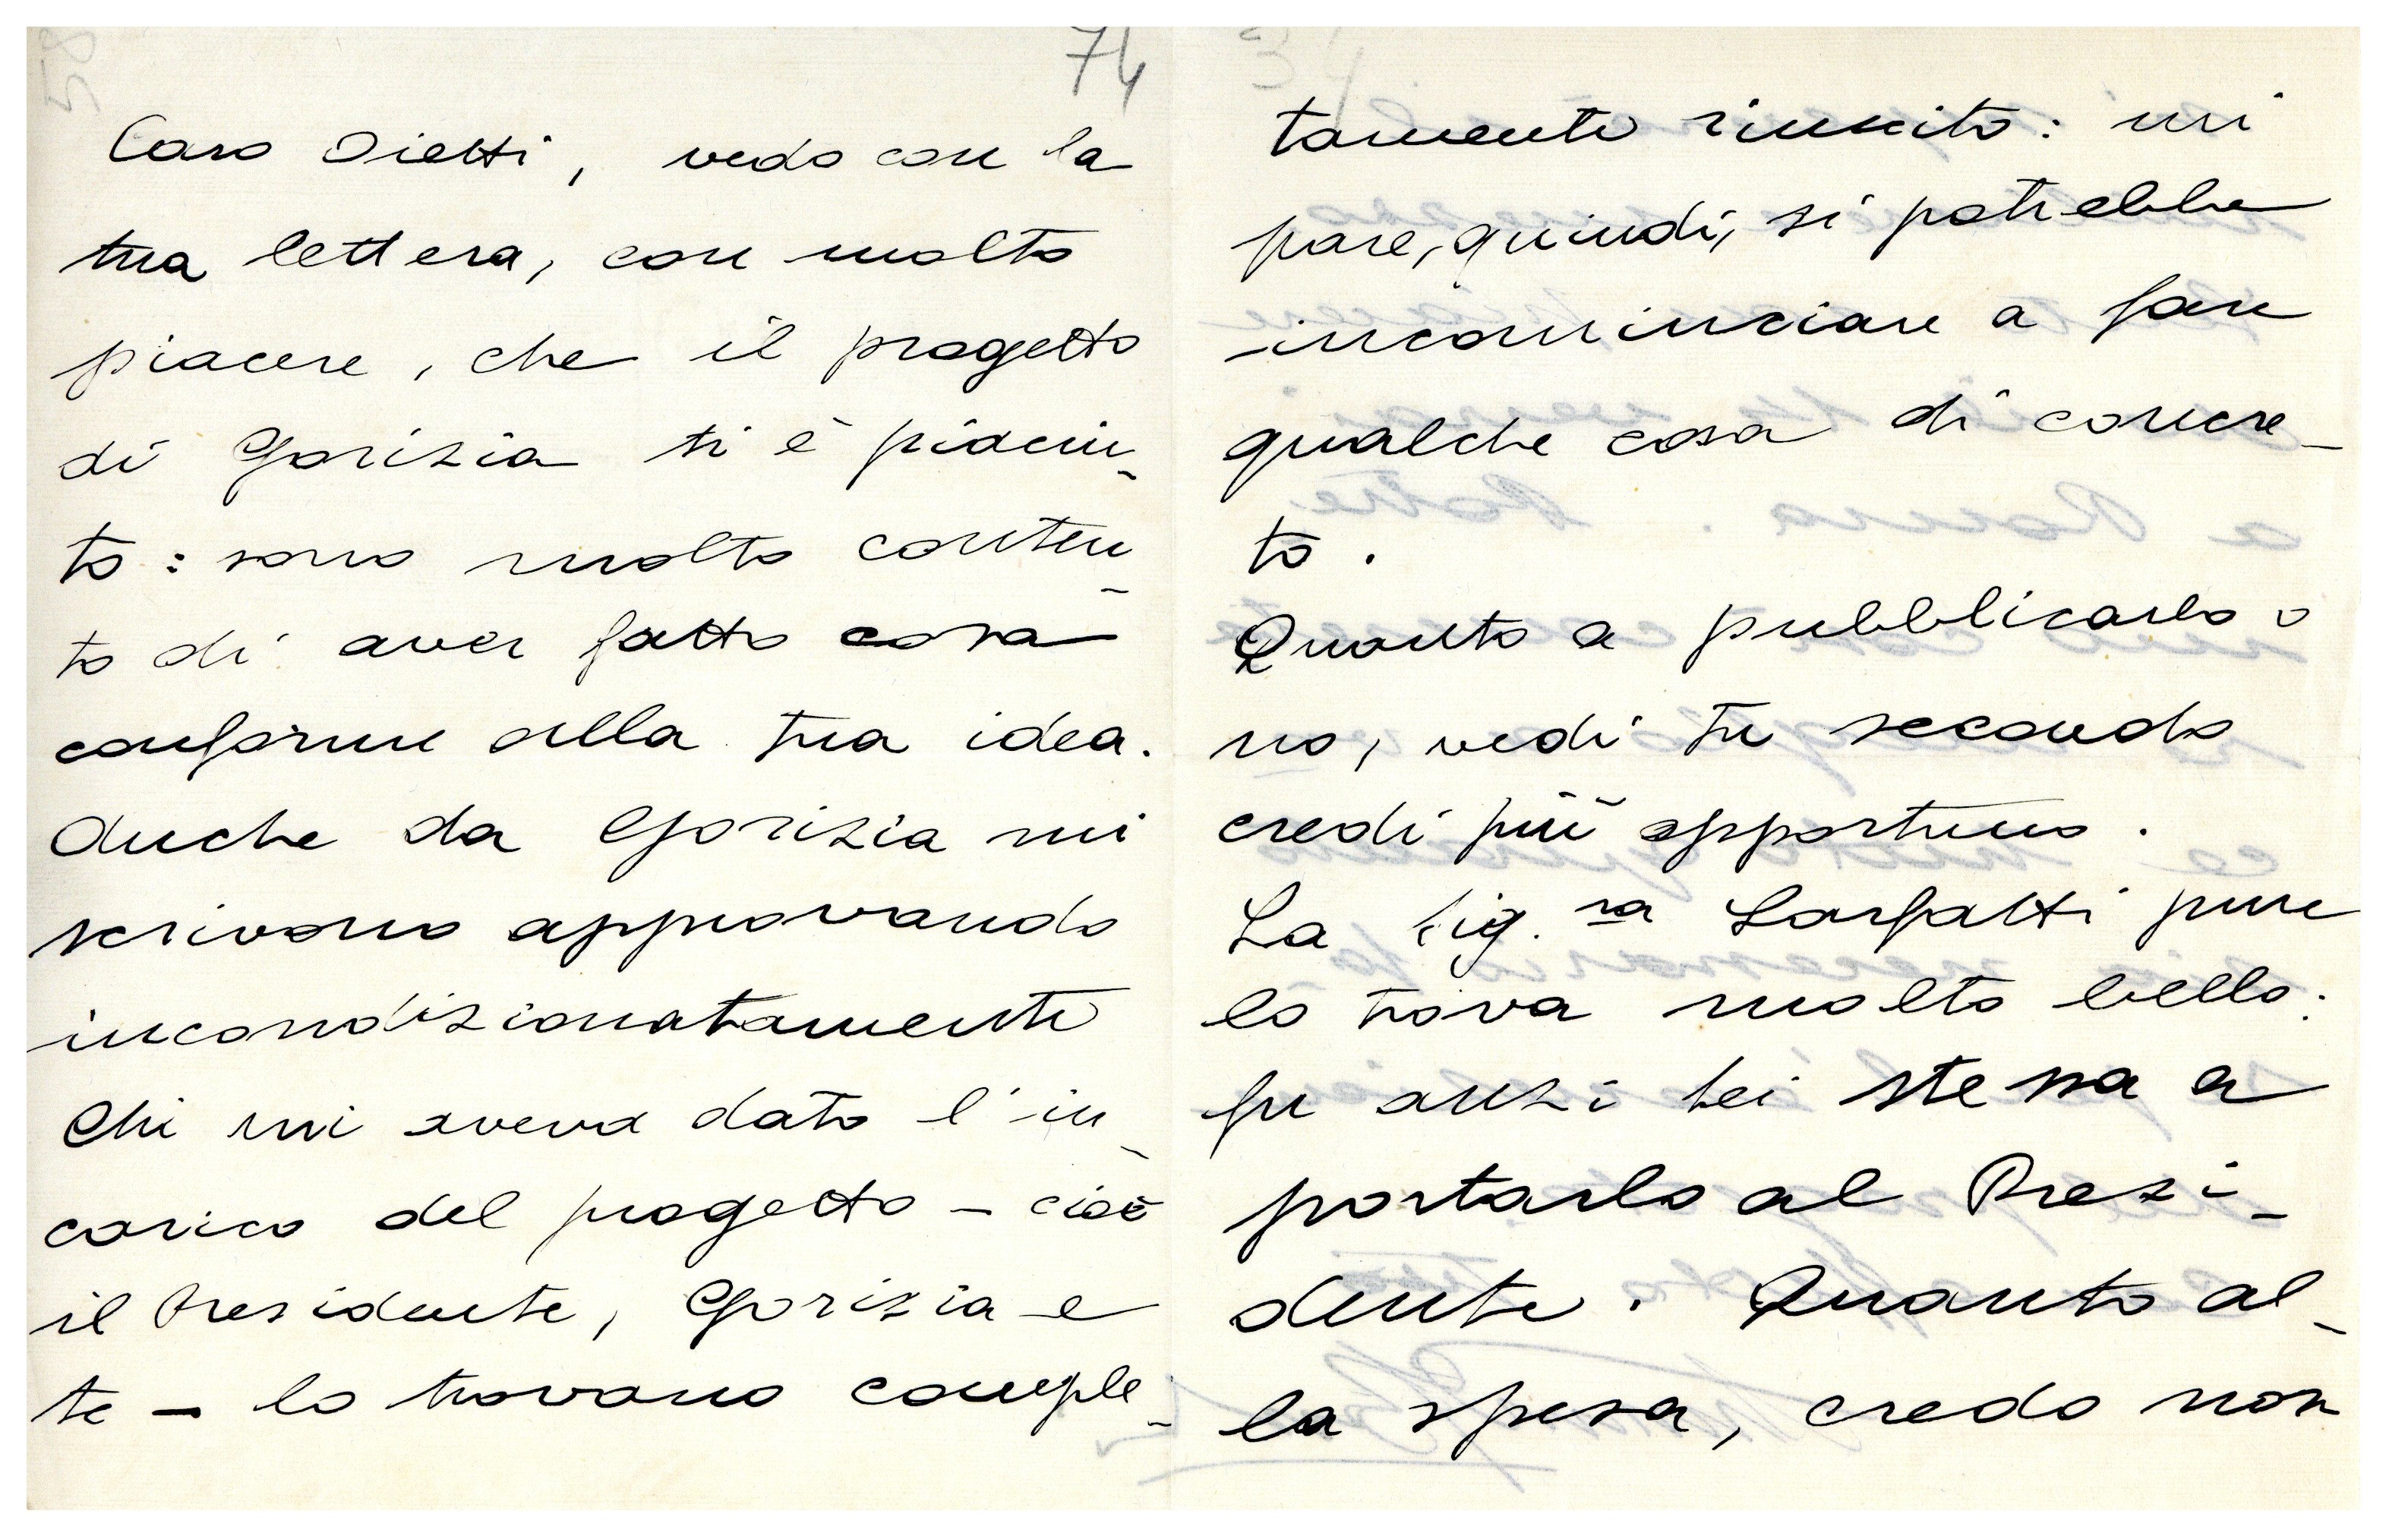 74
Caro Oietti, vedo con la
tua lettera, con molto
piacere, che il progetto
di Gorizia ti è piaciu-
to: sono molto conten-
to di aver fatto cosa
conforme alla tua idea.
Anche da Gorizia mi
scrivono approvando
incondizionatamente
Chi mi aveva dato l'in-
carico del progetto - cioè
il Presidente, Gorizia e
te - lo trovano comple-
tamente riuscito: mi
pare, quindi, si potrebbe
incominciare a fare
qualche cosa di concre-
to.
Quanto a pubblicarlo o
no, vedi tu secondo
credi più opportuno.
La Sig.ra Sarfatti pure
lo trova molto bello:
fu anzi lei stessa a
portarlo al Presi-
dente. Quanto al-
la spesa, credo non